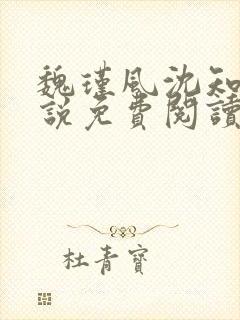 魏瑾風沈知
說免費閱讀
杜青寶